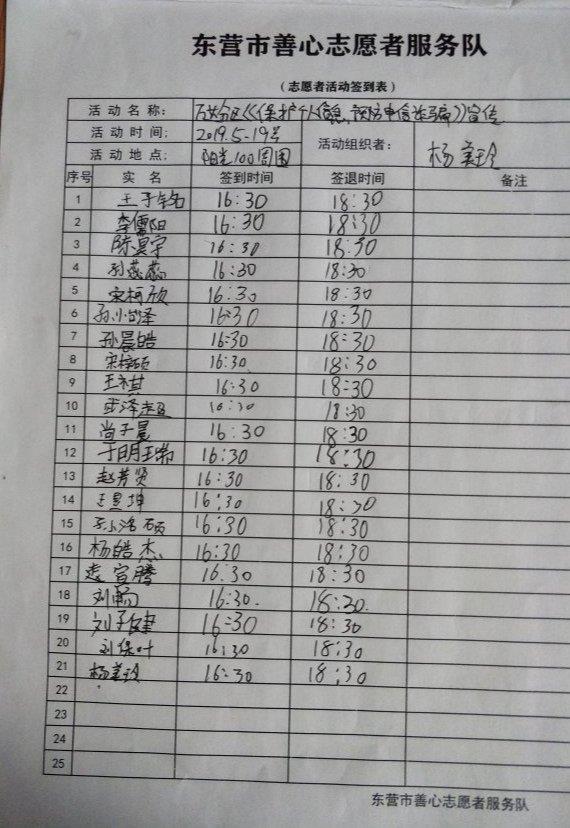 东营市善心志愿者服务队
（志愿者活动签到表）
活动名称: 《保护个人信息,预防电信诈骗》宣传
活动时间: 2019.5-19号
活动地点: 阳光100周围 活动组织者: 杨美玲
序号 实名 签到时间 签退时间 备注
1 王子铭 16:30 18:30
2 李儒阳 16:30 18:30
3 陈昊宇 16:30 18:30
4 孙蕊蕊 16:30 18:30
5 宋柯欣 16:30 18:30
6 16:30 18:30
7 孙晨皓 16:30 18:30
8 宋梓硕 16:30 18:30
9 王祺 16:30 18:30
10 16:30 18:30
11 尚子晨 16:30 18:30
12 16:30 18:30
13 赵芳贤 16:30 18:30
14 王昱坤 16:30 18:30
15 16:30 18:30
16 杨皓杰 16:30 18:30
17 16:30 18:30
18 刘畅 16:30. 18:30.
19 刘子健 16:30 18:30
20 刘保叶 16:30 18:30
21 杨美玲 16:30 18:30
22
23
24
25
东营市善心志愿者服务队